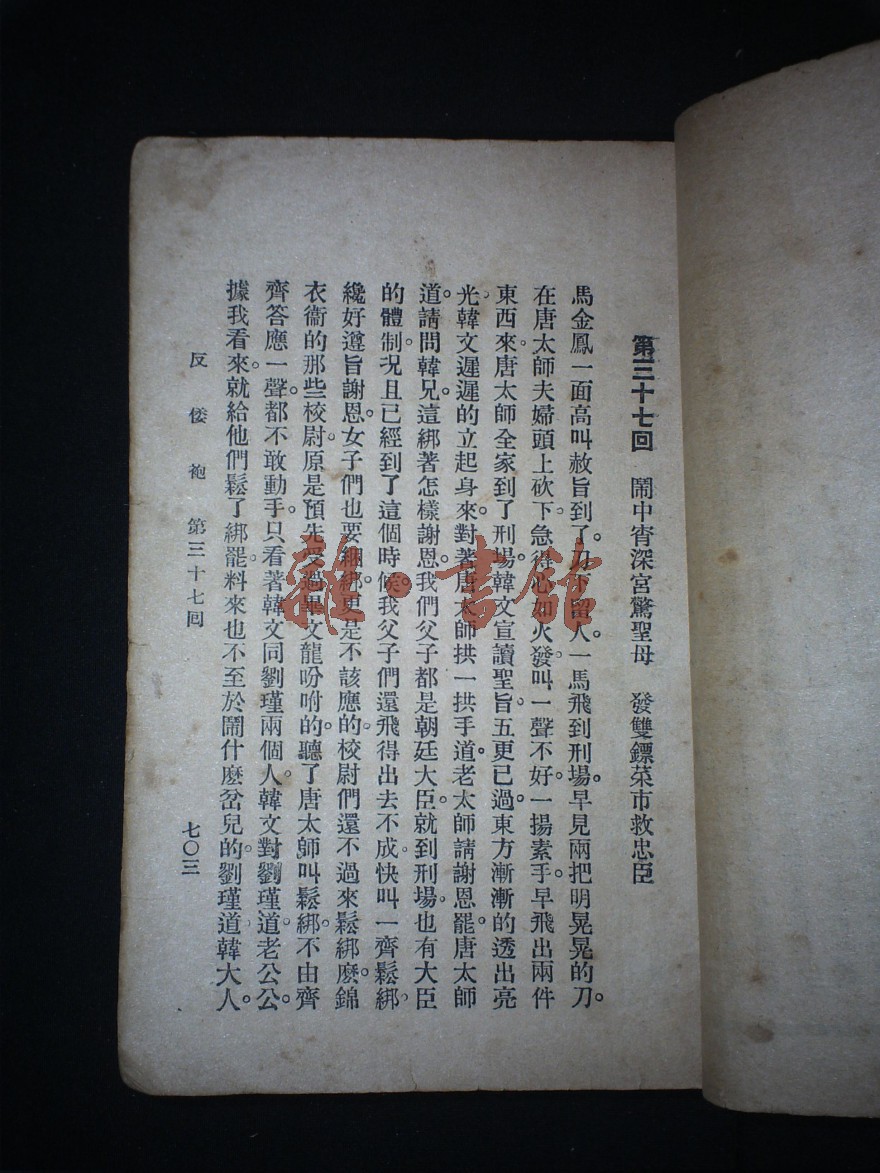 第三十七回 鬧中宵深宮驚聖母 發雙鏢菜市救忠臣
馬金鳳一面高叫赦旨到了。刀下留人。一馬飛到刑場。早見兩把明晃晃的刀。
在唐太師夫婦頭上砍下。急得心如火發。叫一聲不好。一揚素手。早飛出兩件
東西來。唐太師全家到了刑場。韓文宣讀聖旨。五更已過。東方漸漸的透出亮
光。韓文遲遲的立起身來。對著唐太師拱一拱手道。老太師請謝恩罷。唐太師
道。請問韓兄。這綁著怎樣謝恩。我們父子都是朝廷大臣。就到刑場。也有大臣
的體制。況且已經到了這個時候。我父子們還飛得出去不成。快叫一齊鬆綁。
纔好遵旨謝恩。女子們也要綑綁。更是不該應的。校尉們還不過來鬆綁麽。錦
衣衞的那些校尉。原是預先受過畢文龍吩咐的。聽了唐太師叫鬆綁。不由齊
齊答應一聲。都不敢動手。只看著韓文同劉瑾兩個人。韓文對劉瑾道。老公公。
據我看來。就給他們鬆了綁罷。料來也不至於鬧什麽岔兒的。劉瑾道。韓大人。
反倭袍 第三十七回 七〇三
雜·書館